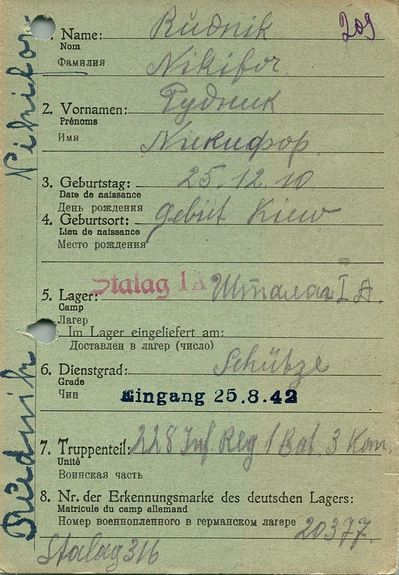 209
1. Name: Rudnik
Nom
Фамилия Nikifor.
2. Vornamen: Рудник
Prénoms
Имя Никифор.
3. Geburtstag: 25.12.10.
Date de naissance
День рождения
4. Geburtsort: Gebiet Kiew
Lieu de naissance
Место рождения
Stalag 1A
5. Lager: Шталаг I A.
Camp
Лагер
Im Lager eingeliefert am:
Доставлен в лагер (число)
6. Dienstgrad: Schütze
Grade
Чин Eingang 25.8.42
7. Truppenteil: 228 Inf Reg 1 Bat. 3 Kom.
Unité
Воинская часть
8. Nr. der Erkennungsmarke des deutschen Lagers:
Matricule du camp allemand
Номер военнопленного в германском лагере 20377
Stalag 316
Nikifor